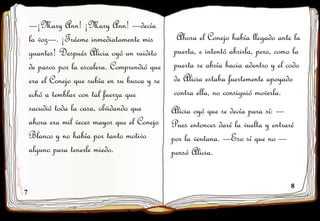 —¡Mary Ann! ¡Mary Ann! —decía
la voz—. ¡Tráeme inmediatamente mis
guantes! Después Alicia oyó un ruidito
de pasos por la escalera. Comprendió que
era el Conejo que subía en su busca y se
echó a temblar con tal fuerza que
sacudió toda la casa, olvidando que
ahora era mil veces mayor que el Conejo
Blanco y no había por tanto motivo
alguno para tenerle miedo.
7
Ahora el Conejo había llegado ante la
puerta, e intentó abrirla, pero, como la
puerta se abría hacia adentro y el codo
de Alicia estaba fuertemente apoyado
contra ella, no consiguió moverla.
Alicia oyó que se decía para sí: —
Pues entonces daré la vuelta y entraré
por la ventana. —Eso sí que no —
pensó Alicia.
8